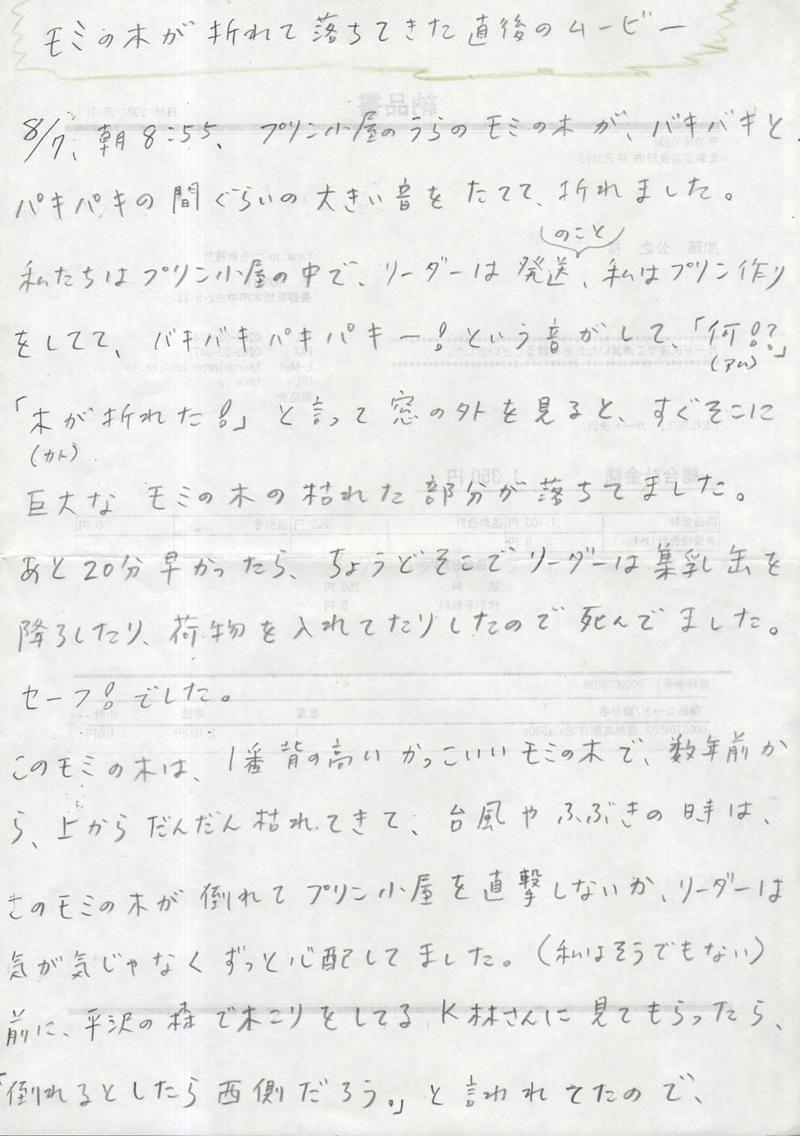 モミの木が折れて落ちてきた直後のムービー
8/7、朝8:55、プリン小屋のうらのモミの木が、バキバキと、
パキパキの間ぐらいの大きい音をたてて、折れました。
私たちはプリン小屋の中で、リーダーは発送(のこと)、私はプリン作り
をしてて、バキバキパキパキー!という音がして、「何!?」
(アム)
「木が折れた!」と言って窓の外を見ると、すぐそこに
(カト)
巨大なモミの木の枯れた部分が落ちてました。
あと20分早かったら、ちょうどそこでリーダーは集乳缶を
降ろしたり、荷物を入れてたりしたので死んでました。
セーフ!でした。
このモミの木は、1番背の高いかっこいいモミの木で、数年前か
ら、上からだんだん枯れてきて、台風やふぶきの時は、
このモミの木が倒れてプリン小屋を直撃しないか、リーダーは
気が気じゃなくずっと心配してました。(私はそうでもない)
前に、平沢の森で木こりをしてるK林さんに見てもらったら、
「倒れるとしたら西側だろう。」と言われてたので、